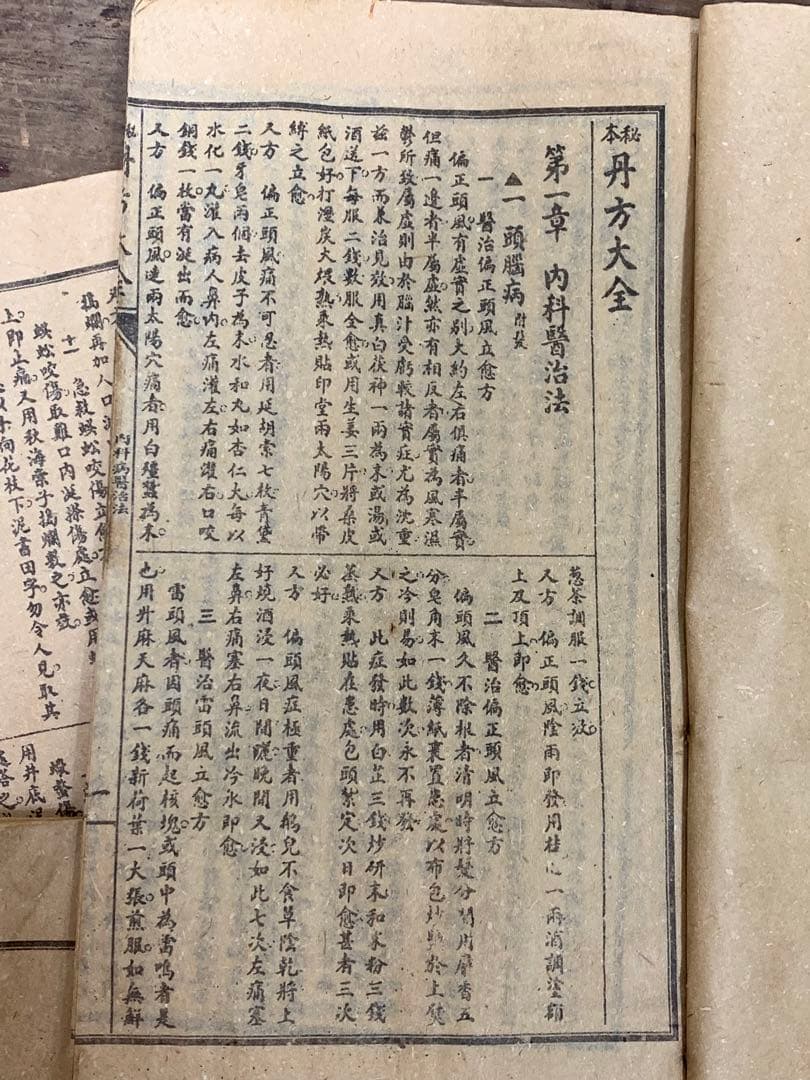 秘本 丹方大全
第一章 內科醫治法
▲一 頭腦病 附髮
一 醫治偏正頭風立愈方
偏正頭風有虛實之別大約左右俱痛者半屬實
但痛一邊者半屬虛然亦有相反者屬實爲風寒濕
鬱所致屬虛則由於腦汁受虧較諸實症尤爲沈重
茲一方而兼治見效用真白茯神一兩爲末或湯或
酒送下每服二錢數服全愈或用生姜三片將桑皮
紙包好打溼炭火煨熟乘熱貼印堂兩太陽穴以帶
縛之立愈
又方 偏正頭風痛不可忍者用延胡索七枚青黛
二錢牙皂兩個去皮子為末水和丸如杏仁大每以
水化一丸灌入病人鼻內左痛灌左右痛灌右口咬
銅錢一枚當有涎出而愈
又方 偏正頭風連兩太陽穴痛者用白殭蠶為末
葱茶調服一錢立效
又方 偏正頭風陰雨即發用桂心一兩酒調塗額
上及頂上即愈
二 醫治偏正頭風立愈方
偏頭風久不除根者清明時將髮分開用麝香五
分皂角末一錢薄紙裹置患處以布包炒鹽於上熨
之冷則易如此數次永不再發
又方 此症發時用白芷三錢炒研末和米粉三錢
蒸熟乘熱貼在患處包頭紮定次日即愈甚者三次
必好
又方 偏頭風症極重者用鵝兒不食草陰乾將上
好燒酒浸一夜日間曬晚間又浸如此七次左痛塞
左鼻右痛塞右鼻流出冷水即愈
三 醫治雷頭風立愈方
雷頭風者因頭痛而起核塊或頭中為雷鳴者是
也用升麻天麻各一錢新荷葉一大張煎服如無鮮
丹方大全
內科病醫治法
一
搗爛再加人口
十一 急救蜈蚣咬傷立愈方
蜈蚣咬傷取雞口內涎搽傷處立愈或用
上即止痛又用秋海棠子搗爛敷之亦效
向花枝下泥書田字勿令人見取其
用井底泥